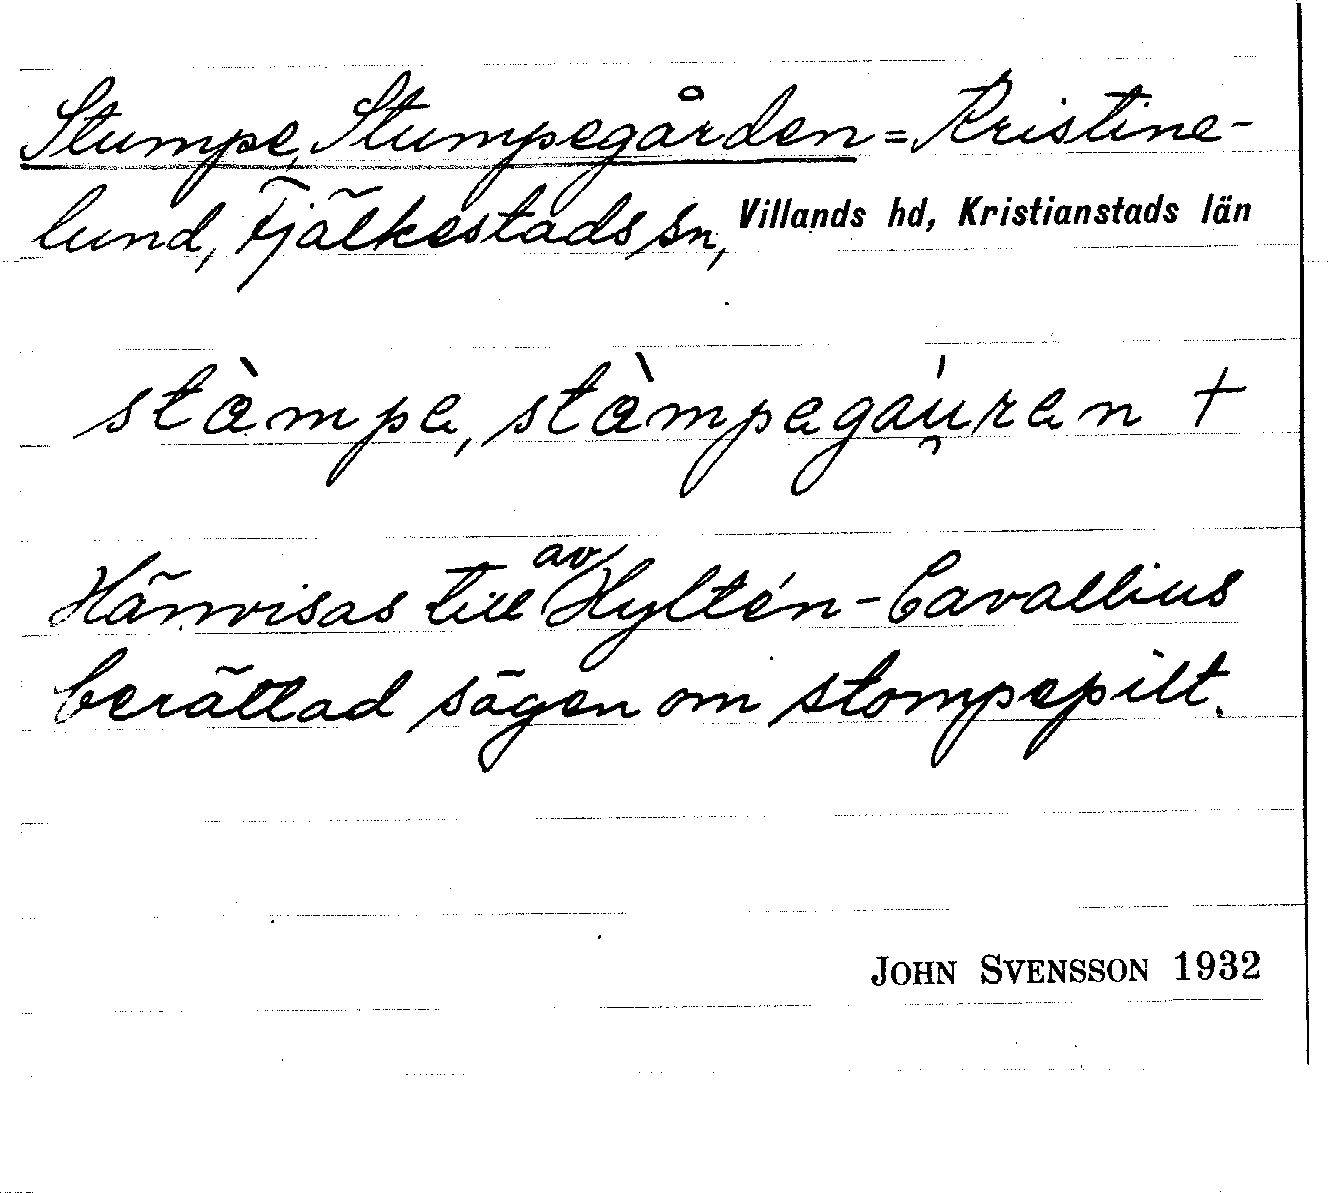 Stumpe, Stumpegården = Kristine-
lund, Fjälkestads sn, Villands hd, Kristianstads län
stàmpe, stàmpegáu̯ren +
Hänvisas till av Hyltén-Cavallius
berättad sägen om stompepilt.
JOHN SVENSSON 1932